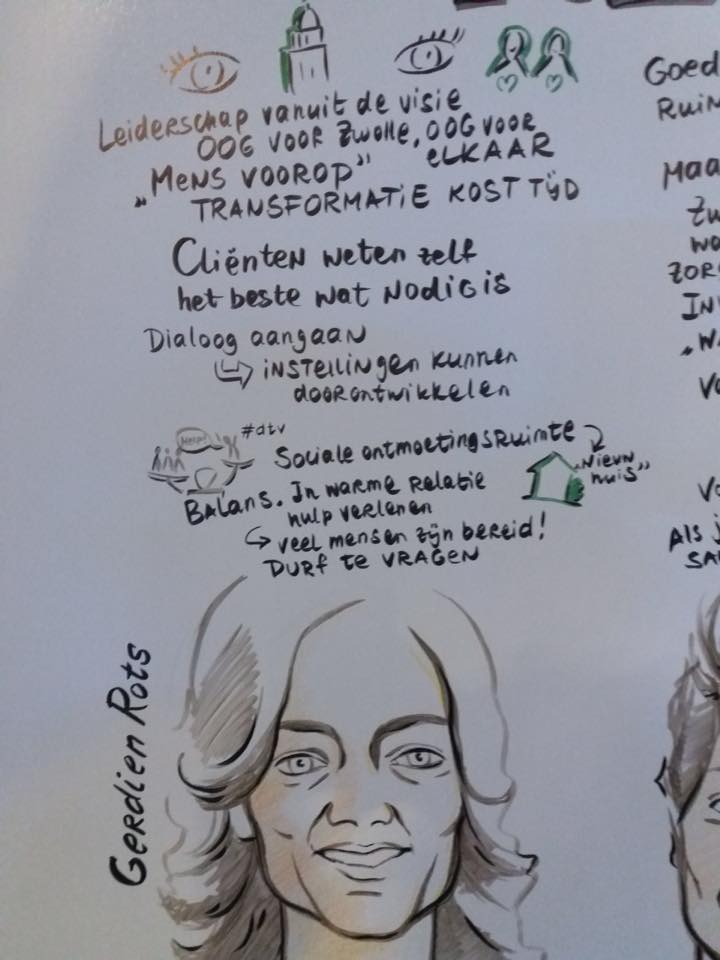 Leiderschap vanuit de visie
OOG VOOR Zwolle, OOG VOOR
ELKAAR
"MENS VOOROP"
TRANSFORMATIE KOST TIJD
Cliënten weten zelf
het beste wat nodig is
Dialoog aangaan
instellingen kunnen
doorontwikkelen
#dtv
Sociale ontmoetingsruimte
"Nieuw
huis"
Balans. In warme relatie
hulp verlenen
veel mensen zijn bereid!
DURF te VRAGEN
Gerdien Rots
Goed
Ruim
Maa
Zw
wa
ZOR
IN
"W
Vo
Vo
Als j
SA